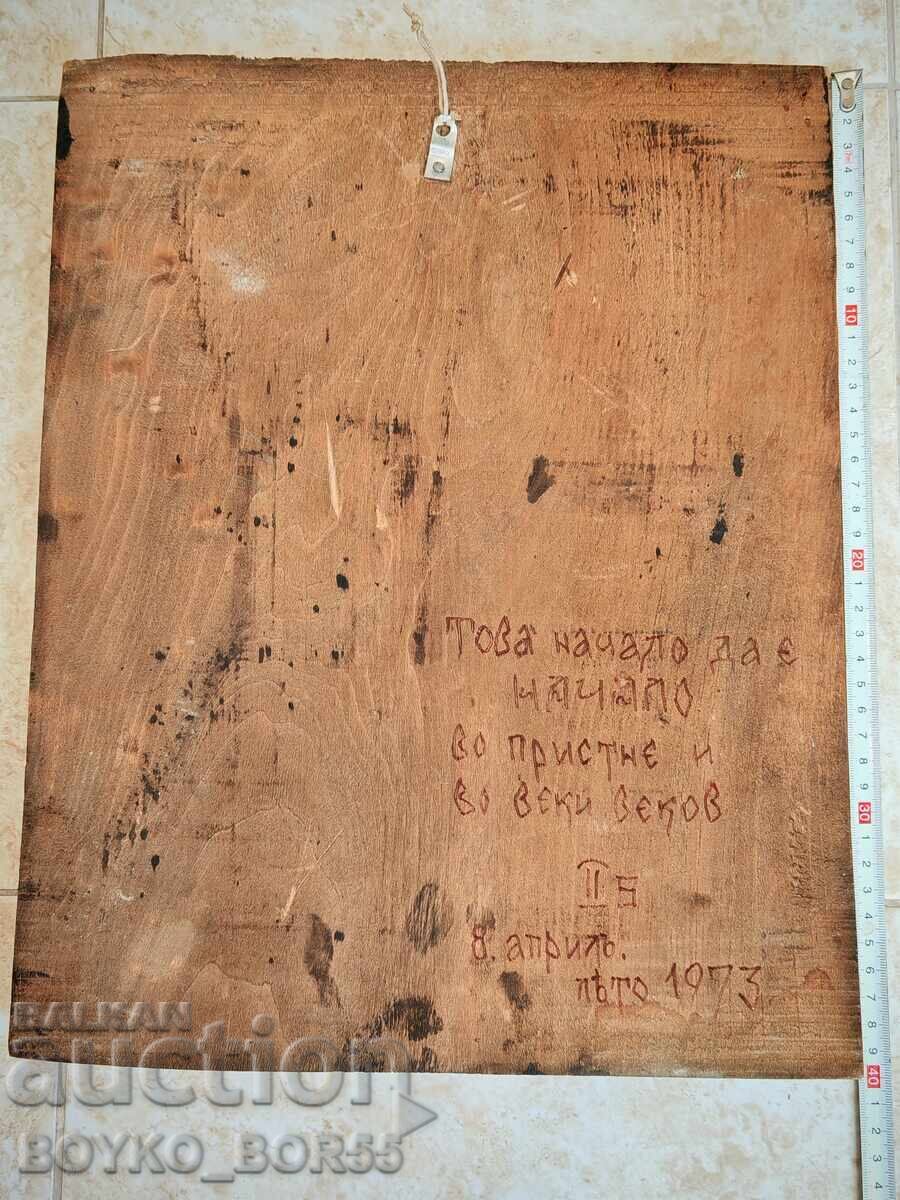 това начало да е
начало
во пристне и
во веки веков
8. априль.
лѣто 1973
BALKAN
auction
BOYKO_BOR55
2
3
4
5
6
7
8
9
10
1
2
3
4
5
6
7
8
9
20
1
2
3
4
5
6
7
8
9
30
1
2
3
4
5
6
7
8
9
40
1
2
3
4